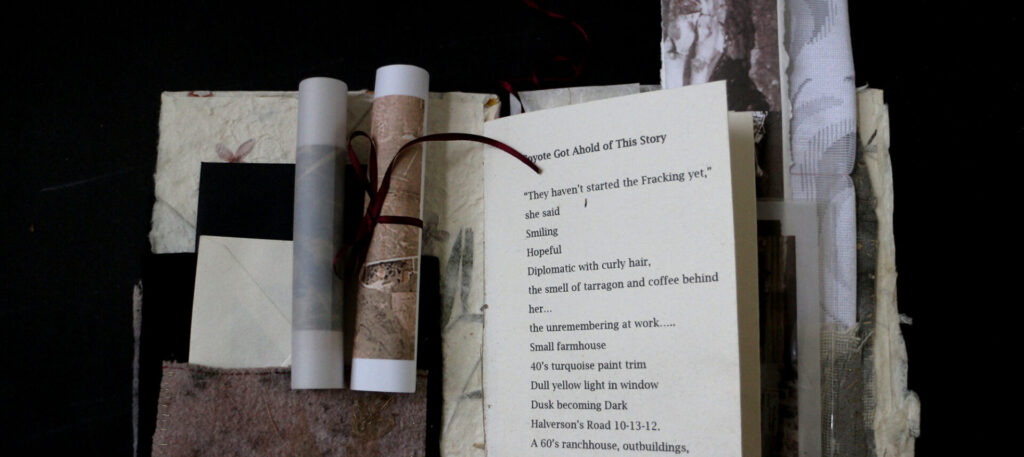 Coyote Got Ahold of This Story
“They haven’t started the Fracking yet,”
she said
Smiling
Hopeful
Diplomatic with curly hair,
the smell of tarragon and coffee behind
her…
the unremembering at work…..
Small farmhouse
40’s turquoise paint trim
Dull yellow light in window
Dusk becoming Dark
Halverson’s Road 10-13-12.
A 60’s ranchhouse, outbuildings,